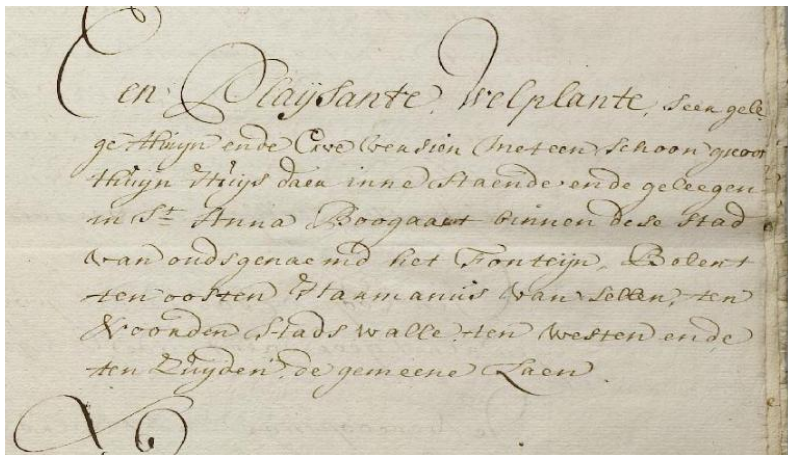 Een Playsante, Welplante, seer gele
ge thuyn ende Erve versien met een schoon groot
thuyn Huys daer inne staende ende geleegen
in St. Anna Boogaart binnen dese stad
van ouds genaemd het Fonteijn, Belent
ten oosten Harmanus van Sellen, ten
Noorden Stads walle, ten westen ende
ten Zuyden, de gemeene Laen